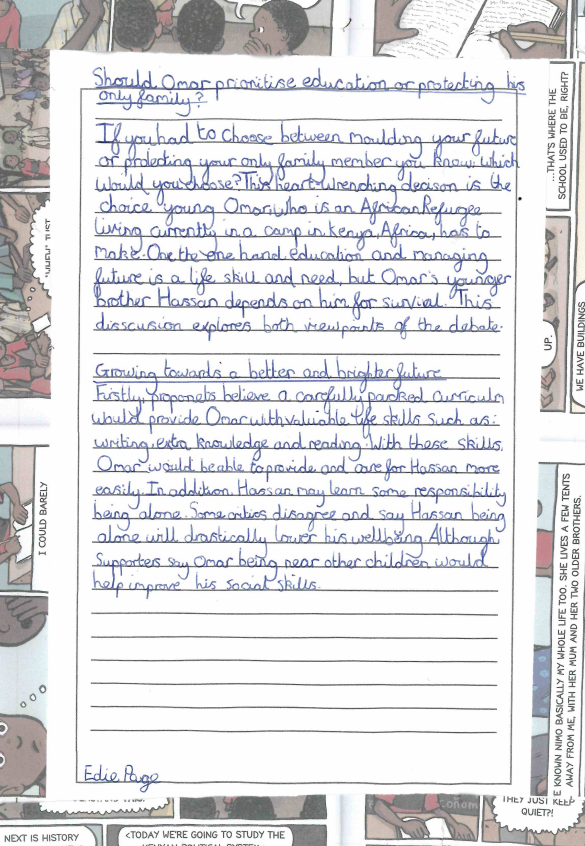 Should Omar prioritise education or protecting his
only family?
If you had to choose between moulding your future
or protecting your only family member you know, which
would you choose? This heart-wrenching decison is the
choice young Omar, who is an African Refugee
living currently in a camp in Kenya, Africa, has to
make. One the one hand, education and managing
future is a life skill and need, but Omar's younger
brother Hassan depends on him for survival. This
disscusion explores both viewpoints of the debate.
Growing towards a better and brighter future
Firstly, proponets believe a carefully packed curriculm
would provide Omar with valuable life skills such as:
writing, extra knowledge and reading. With these skills,
Omar would be able to provide and care for Hassan more
easily. In addition, Hassan may learn some responsibility
being alone. Some critics disagree and say Hassan being
alone will drastically lower his wellbeing. Although,
Supporters say Omar being near other children would
help improve his social skills.
Edie Paige
...THAT'S WHERE THE
SCHOOL USED TO BE, RIGHT?
UP.
WE HAVE BUILDINGS
I COULD BARELY
KNOWN NIMO BASICALLY MY WHOLE LIFE TOO. SHE LIVES A FEW TENTS
AWAY FROM ME, WITH HER MUM AND HER TWO OLDER BROTHERS.
THEY JUST KEEP
QUIET?!
NEXT IS HISTORY
<TODAY WE'RE GOING TO STUDY THE